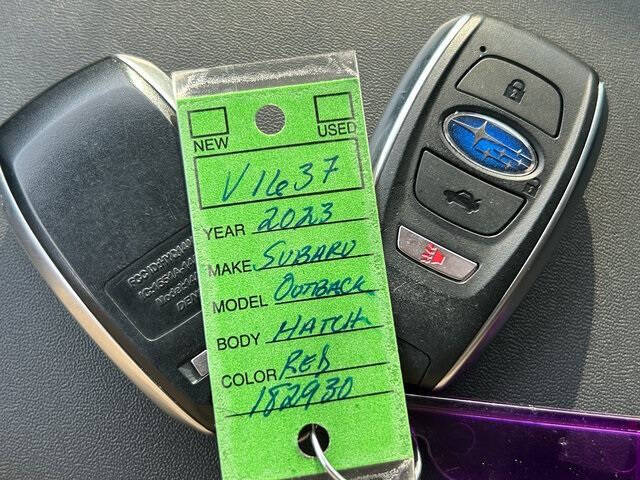 NEW USED
V1637
YEAR 2023
MAKE SUBARU
MODEL OUTBACK
BODY HATCH
COLOR RED
182930